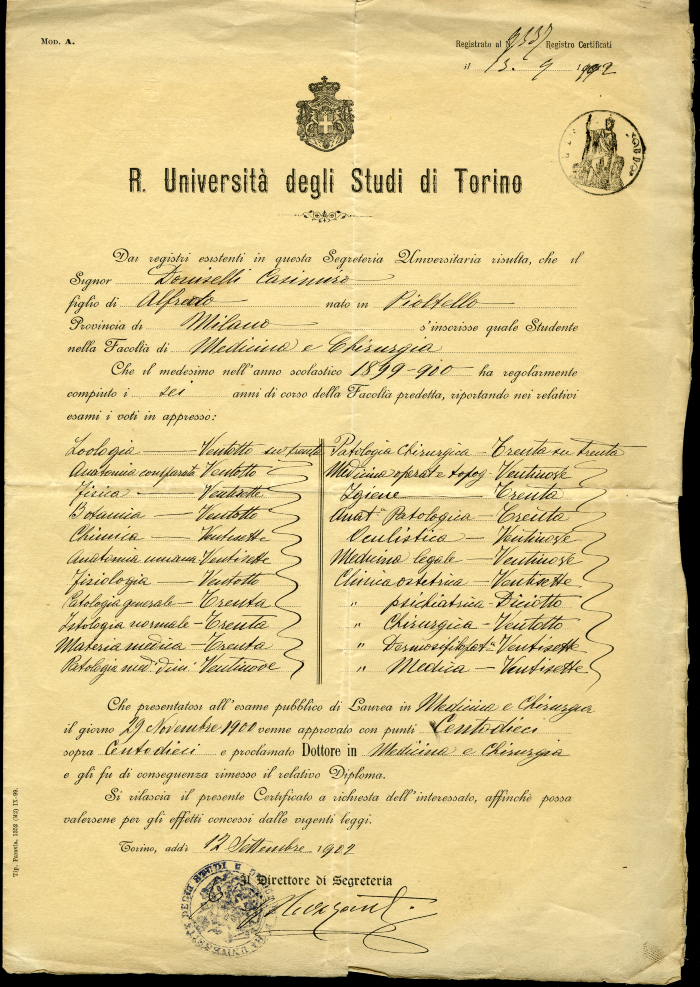 Mod. A.
Registrato al N. 9337 Registro Certificati
il 13. 9 1902
R. Università degli Studi di Torino
Dai registri esistenti in questa Segreteria Universitaria risulta, che il
Signor Doniselli Casimiro
figlio di Alfredo nato in Pioltello
Provincia di Milano s'inscrisse quale Studente
nella Facoltà di Medicina e Chirurgia
Che il medesimo nell'anno scolastico 1899-900 ha regolarmente
compiuto i sei anni di corso della Facoltà predetta, riportando nei relativi
esami i voti in appresso:
Zoologia — Ventotto su trenta
Anatomia comparata Ventotto
Fisica — Ventisette
Botanica — Ventotto
Chimica — Ventisette
Anatomia umana Ventisette
Fisiologia — Ventotto
Patologia generale — Trenta
Istologia normale — Trenta
Materia medica — Trenta
Patologia med. dim. Ventinove
Patologia Chirurgica — Trenta su trenta
Medicina operat e topog — Ventinove
Igiene — Trenta
Anat. Patologica — Trenta
Oculistica — Ventinove
Medicina legale — Ventinove
Clinica ostetrica — Ventisette
" psichiatrica — Diciotto
" Chirurgica — Ventotto
" Dermosifilopat. — Ventisette
" Medica — Ventisette
Che presentatosi all'esame pubblico di Laurea in Medicina e Chirurgia
il giorno 29 Novembre 1900 venne approvato con punti Centodieci
sopra Centodieci e proclamato Dottore in Medicina e Chirurgia
e gli fu di conseguenza rimesso il relativo Diploma.
Si rilascia il presente Certificato a richiesta dell'interessato, affinchè possa
valersene per gli effetti concessi dalle vigenti leggi.
Torino, addì 12 Settembre 1902
Il Direttore di Segreteria
Tip. Paravia. 1352 (M3) IX-99.